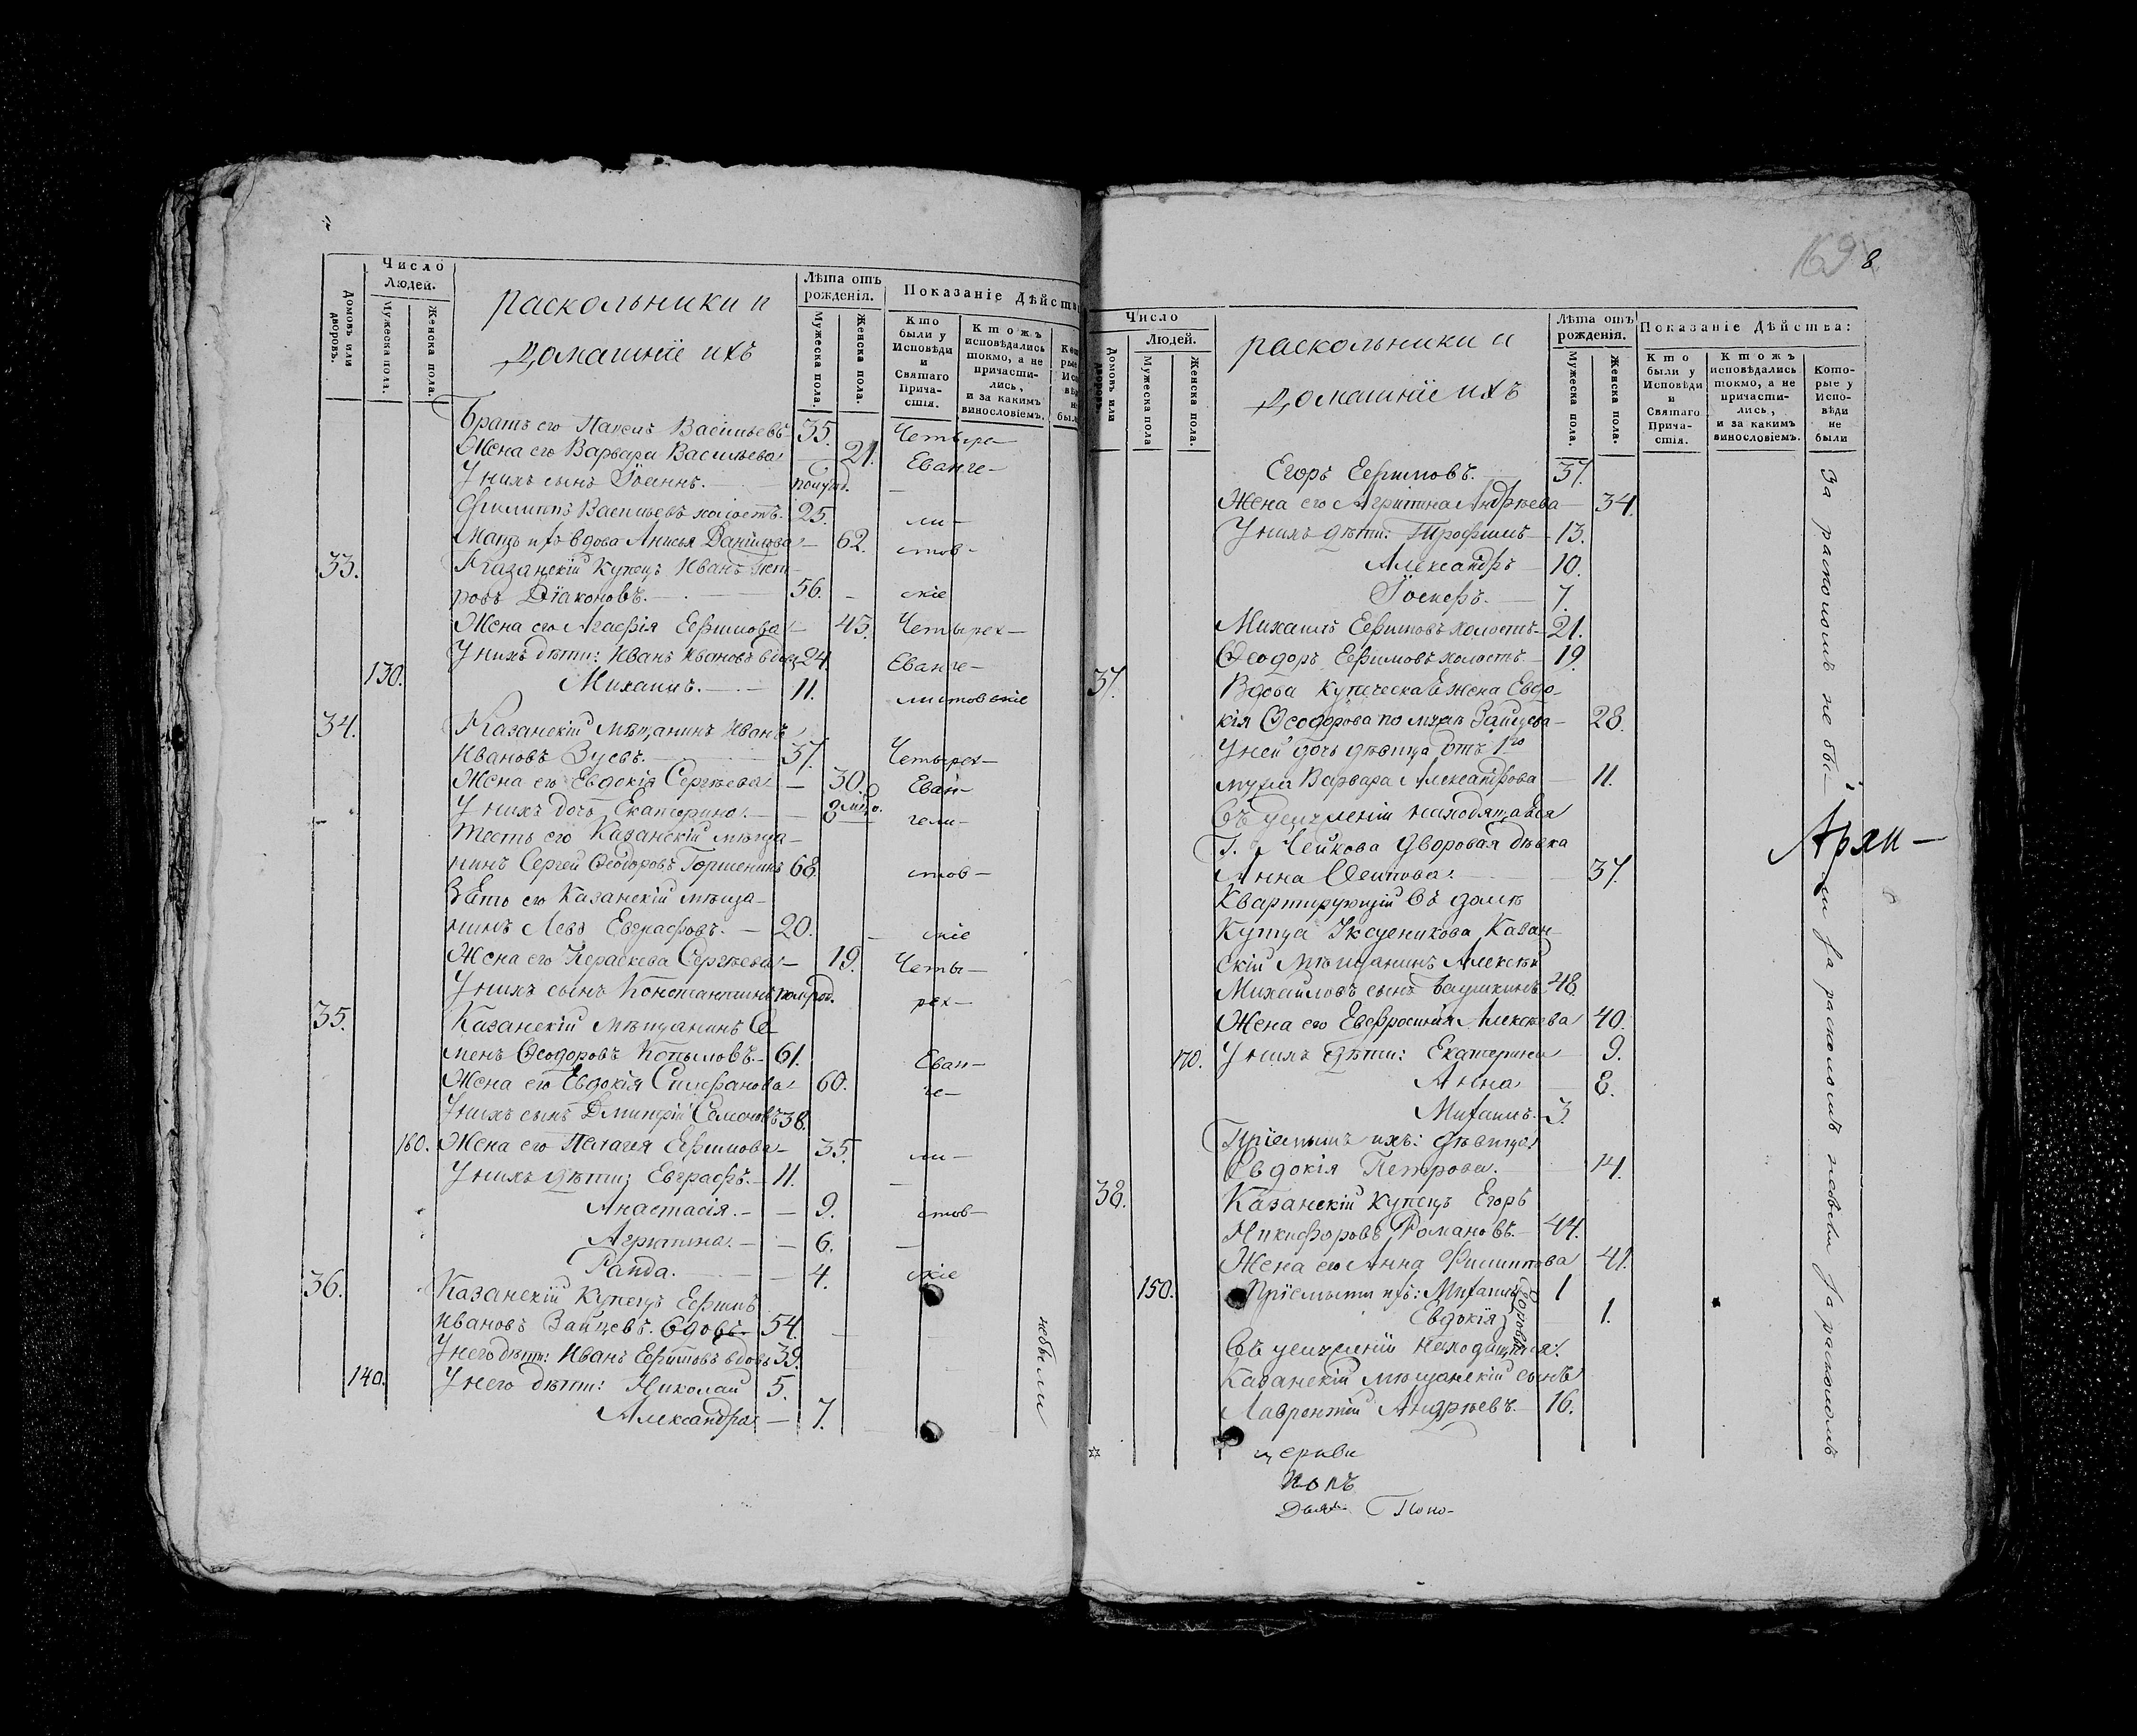 Число
Людей.
Домовъ или дворовъ.
Мужеска пола.
Женска пола.
раскольники и
домашніе ихъ
Лѣта отъ
рожденія.
Мужеска пола.
Женска пола.
Показаніе Дѣйств
Кто
были у
Исповѣди
и
Святаго
Прича-
стія.
Ктожъ
исповѣдались
токмо, а не
причасти-
лись,
и за какимъ
винословіемъ.
Братъ его Васильевъ 35.
Жена его Варвара Васильева 21.
У нихъ сынъ Іоаннъ. полугод.
Филиппъ Васильевъ холостъ. 25.
Мать ихъ вдова Анисья Данилова 62.
33. Казанскій Купецъ Иванъ Пет-
ровъ Діаконовъ. 56.
Жена его Агафія Ефимова 43.
У нихъ дѣти: Иванъ Ивановъ вдовъ 24.
130. Михаилъ. 11.
34. Казанскій Мѣщанинъ Иванъ
Ивановъ Зуевъ. 37.
Жена его Евдокія Сергѣева 30.
У нихъ дочь Екатерина. 8
Тесть его Казанскій мѣща-
нинъ Сергей Ѳеодоровъ Горшенинъ 68.
Зять его Казанскій мѣща-
нинъ Левъ Евграфовъ. 20.
Жена его Параскева Сергѣева 19.
У нихъ сынъ Константинъ полугод.
35. Казанскій Мѣщанинъ Се-
менъ Ѳеодоровъ Копыловъ. 61.
Жена его Евдокія 60.
У нихъ сынъ Дмитрій Семеновъ 38.
160. Жена его Пелагея Ефимова 35.
У нихъ дѣти: Евграфъ. 11.
Анастасія. 9.
Агрипина. 6.
Раида. 4.
36. Казанскій Купецъ Ефимъ
Ивановъ Зайцевъ. вдовъ 54.
У него дѣти: Иванъ Ефимовъ вдовъ 39.
140. У него дѣти: Николай 5.
Александра 7.
Четыре-
Еванге-
ли-
стов-
скіе
Четырех-
Еванге-
листовскіе
Четырех-
Еван-
гели-
стов-
скіе
Четы-
рех-
Еван-
ге-
ли-
стов-
скіе
небыли
169 8
Число
Людей.
Домовъ или дворовъ.
Мужеска пола
Женска пола.
раскольники и
домашніе ихъ
Лѣта отъ
рожденія.
Мужеска пола.
Женска пола.
Показаніе Дѣйства:
Кто
были у
Исповѣди
и
Святаго
Прича-
стія.
Ктожъ
исповѣдались
токмо, а не
причасти-
лись,
и за какимъ
винословіемъ.
Кото-
рые у
Испо-
вѣди
не
были
Егоръ Ефимовъ. 37.
Жена его Агрипина Андрѣева 34.
У нихъ дѣти: Трофимъ 13.
Александръ 10.
Іосифъ. 7.
Михаилъ Ефимовъ холостъ 21.
Ѳеодоръ Ефимовъ холостъ 19.
37. Вдова Купеческая жена Евдо-
кія Ѳеодорова по мужѣ Зайцева 28.
У ней дочь дѣвица отъ 1го
мужа Варвара Александрова 11.
Въ услуженіи находящаяся
Г. Чейкова дворовая дѣвка
Анна Осипова. 37.
Квартирующій въ домѣ
Купца Казан-
скій Мѣщанинъ Алексѣй
Михайловъ сынъ 48.
Жена его Евфросинія Алексѣева 40.
170. У нихъ дѣти: Екатерина 9.
Анна 8.
Михаилъ. 3.
Пріемышъ ихъ: дѣвица
Евдокія Петрова. 14.
38. Казанскій Купецъ Егоръ
Никифоровъ Романовъ. 44.
Жена его Анна Филиппова 41.
150. Пріемыши ихъ: Михаилъ 1
Евдокія 1.
Егоровы
Въ услуженіи находящійся
Казанскій мѣщанскій сынъ
Лаврентій Андрѣевъ. 16.
За расколомъ не бы- ли за расколомъ небыли за расколомъ
Арян-
церкви
попъ
Попо-